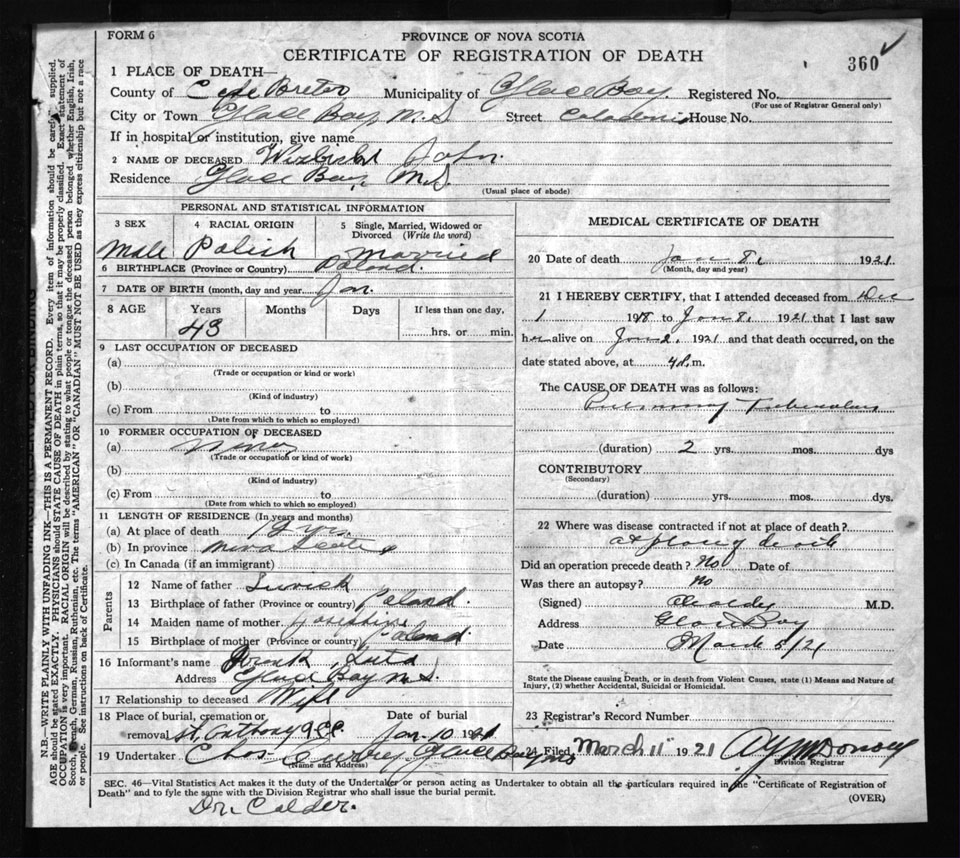 FORM 6
PROVINCE OF NOVA SCOTIA
CERTIFICATE OF REGISTRATION OF DEATH
360
1 PLACE OF DEATH—
County of Cape Breton Municipality of Glace Bay. Registered No.
(For use of Registrar General only)
City or Town Glace Bay, N.S. Street Caledonia House No.
If in hospital or institution, give name
2 NAME OF DECEASED John.
Residence Glace Bay, N.S.
(Usual place of abode)
PERSONAL AND STATISTICAL INFORMATION
3 SEX
Male
4 RACIAL ORIGIN
Polish
5 Single, Married, Widowed or Divorced (Write the word)
Married
6 BIRTHPLACE (Province or Country) Poland.
7 DATE OF BIRTH (month, day and year) Jan.
8 AGE Years Months Days If less than one day,
43 hrs. or min.
9 LAST OCCUPATION OF DECEASED
(a)
(Trade or occupation or kind or work)
(b)
(Kind of industry)
(c) From to
(Date from which to which so employed)
10 FORMER OCCUPATION OF DECEASED
(a)
(Trade or occupation or kind of work)
(b)
(Kind of industry)
(c) From to
(Date from which to which so employed)
11 LENGTH OF RESIDENCE (In years and months)
(a) At place of death yrs.
(b) In province Nova Scotia
(c) In Canada (if an immigrant)
Parents
12 Name of father
13 Birthplace of father (Province or country) Poland.
14 Maiden name of mother Josephine
15 Birthplace of mother (Province or country) Poland
16 Informant's name
Address Glace Bay N.S.
17 Relationship to deceased Wife
18 Place of burial, cremation or removal St. Anthony
Date of burial
Jan. 10 1921
19 Undertaker Chas Curry, Glace Bay NS
(Name and Address)
MEDICAL CERTIFICATE OF DEATH
20 Date of death Jan 8. 1921
(Month, day and year)
21 I HEREBY CERTIFY, that I attended deceased from Dec
1 1918 to Jan 8. 1921 that I last saw
him alive on Jan 2. 1921 and that death occurred, on the
date stated above, at 4 m.
The CAUSE OF DEATH was as follows:
Pulmonary Tuberculosis
(duration) 2 yrs. mos. dys
CONTRIBUTORY
(Secondary)
(duration) yrs. mos. dys.
22 Where was disease contracted if not at place of death?
at place of death
Did an operation precede death? No Date of
Was there an autopsy? No
(Signed) M.D.
Address Glace Bay
Date March 5/21
State the Disease causing Death, or in death from Violent Causes, state (1) Means and Nature of
Injury, (2) whether Accidental, Suicidal or Homicidal.
23 Registrar's Record Number
24 Filed March 11 1921
Division Registrar
SEC. 46—Vital Statistics Act makes it the duty of the Undertaker or person acting as Undertaker to obtain all the particulars required in the "Certificate of Registration of
Death" and to fyle the same with the Division Registrar who shall issue the burial permit.
(OVER)
Dr. Calder.
N.B.—WRITE PLAINLY WITH UNFADING INK—THIS IS A PERMANENT RECORD. Every item of information should be carefully supplied.
AGE should be stated EXACTLY. PHYSICIANS should STATE CAUSE OF DEATH in plain terms, so that it may be properly classified. Exact statement of
OCCUPATION is very important. RACIAL ORIGIN will be described by stating to what people or tongue the deceased person belonged whether English, Irish,
Scotch, French, German, Russian, Ruthenian, etc. The terms "AMERICAN" OR "CANADIAN" MUST NOT BE USED as they express citizenship but not a race
or people. See instructions on back of Certificate.